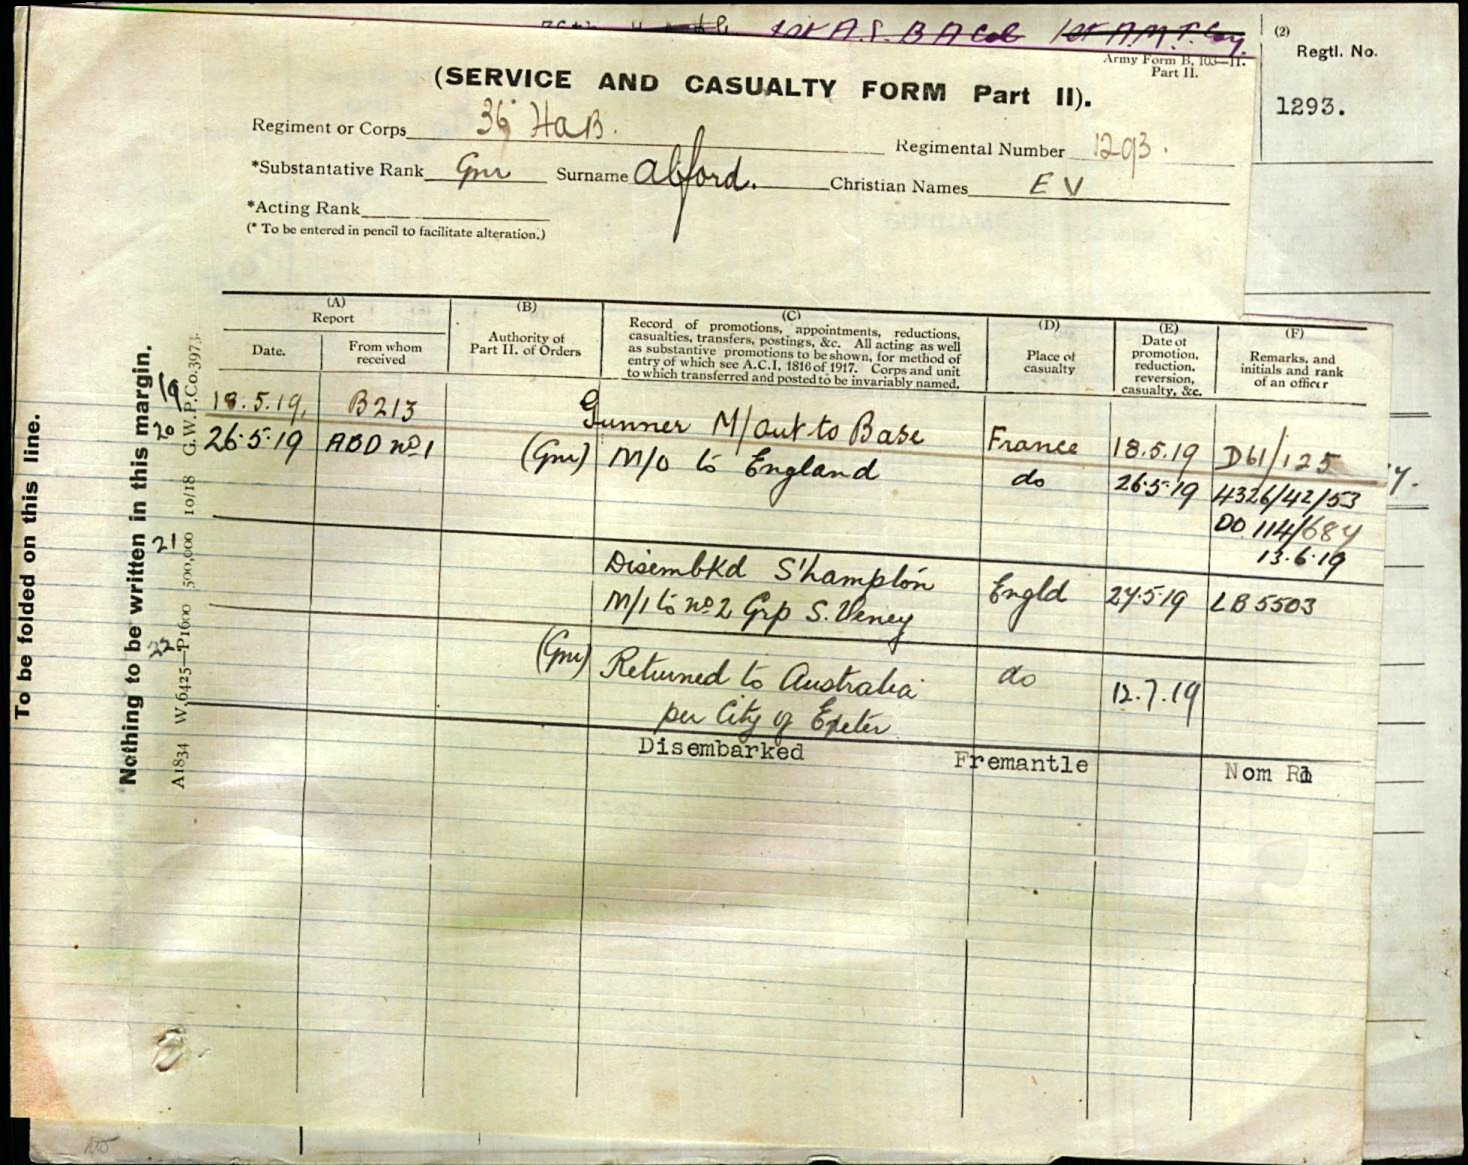 1st A.S. B A Col 1st A.M.T. Coy.
(2)
Regtl. No.
1293.
Army Form B. 103—II.
Part II.
(SERVICE AND CASUALTY FORM Part II).
Regiment or Corps 36 HAB. Regimental Number 1293.
*Substantative Rank Gnr Surname Alford. Christian Names E V
*Acting Rank
(* To be entered in pencil to facilitate alteration.)
(A)
Report
(B)
Authority of
Part II. of Orders
(C)
Record of promotions, appointments, reductions,
casualties, transfers, postings, &c. All acting as well
as substantive promotions to be shown, for method of
entry of which see A.C.I. 1816 of 1917. Corps and unit
to which transferred and posted to be invariably named.
(D)
Place of
casualty
(E)
Date of
promotion,
reduction,
reversion,
casualty, &c.
(F)
Remarks, and
initials and rank
of an officer
Date.
From whom
received
19 18.5.19. B213 Gunner M/out to Base France 18.5.19 D61/125
20 26.5.19 ABD No 1 (Gnr) M/O to England do 26.5.19 4326/42/53
DO 114/684
13.6.19
21 Disembkd S'hampton Engld 27.5.19 LB 5503
M/I to No 2 Grp S. Veney
22 (Gnr) Returned to Australia do 12.7.19
per City of Exeter
Disembarked Fremantle Nom Rl
y.
To be folded on this line.
Nothing to be written in this margin.
A1834 W.6425—P1600 500,000 10/18 G.W.P.Co.3973.